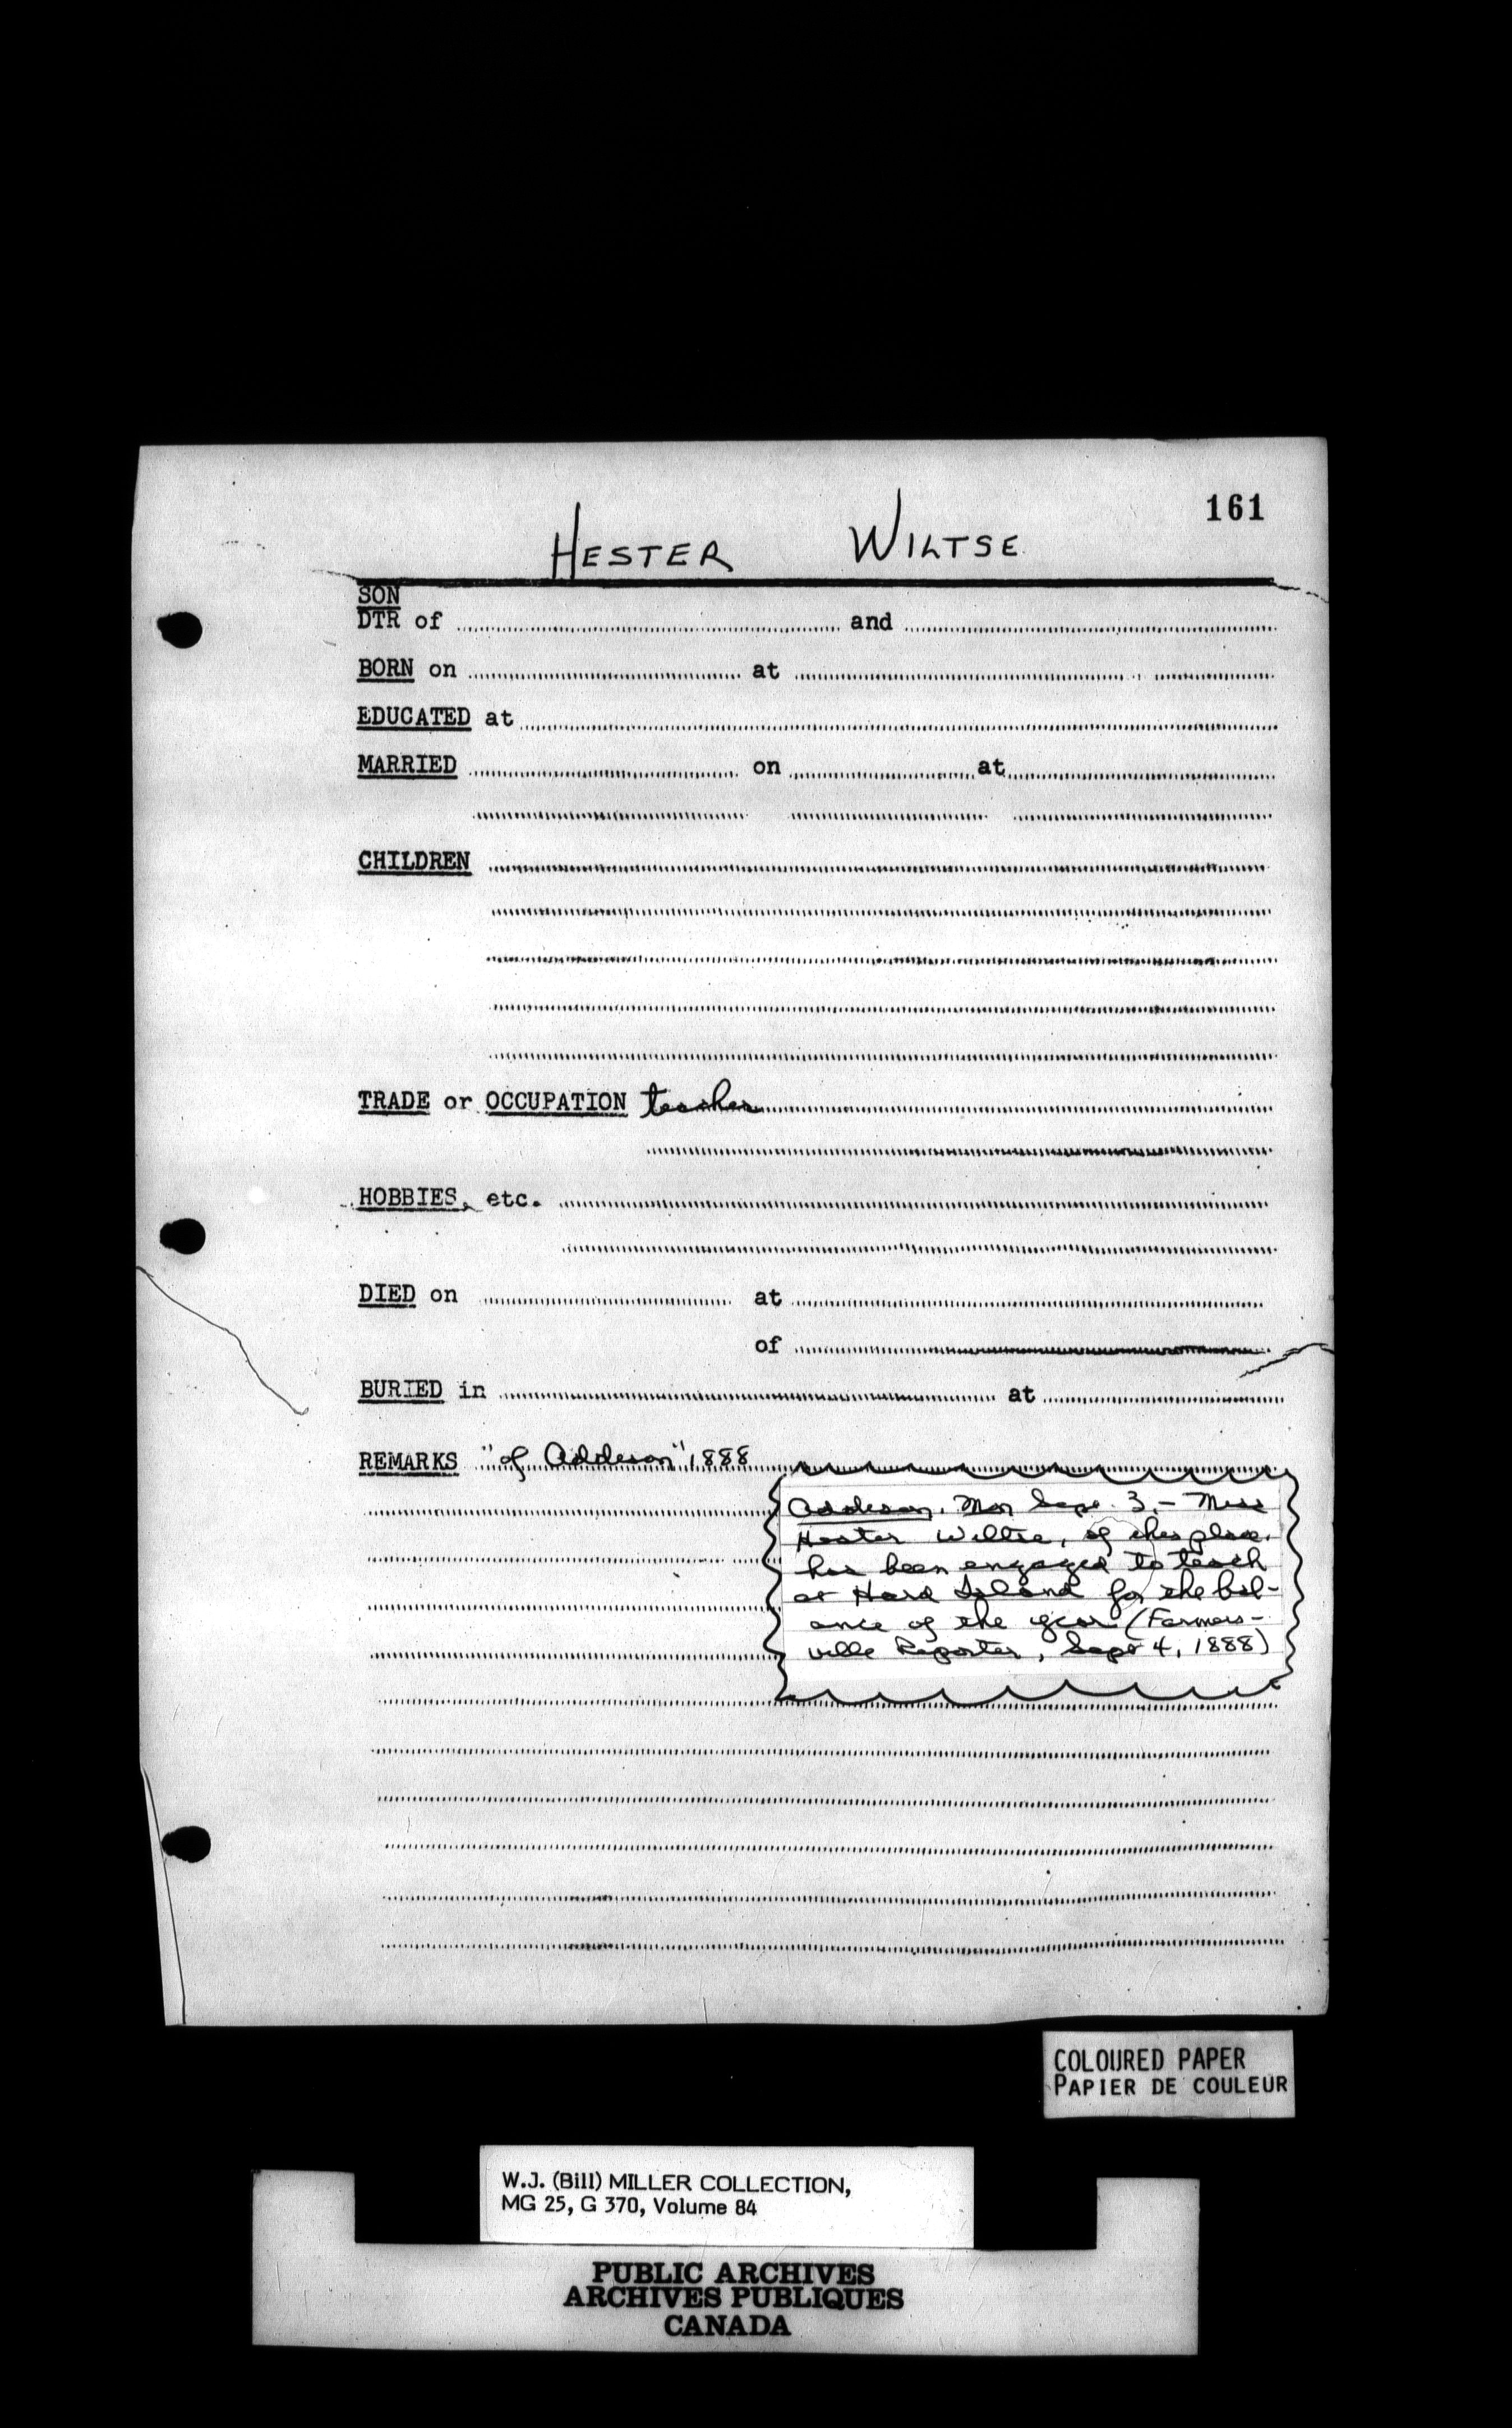 161
HESTER WILTSE
SON
DTR of and
BORN on at
EDUCATED at
MARRIED on at
CHILDREN
TRADE or OCCUPATION teacher
HOBBIES, etc.
DIED on at
of
BURIED in at
REMARKS "of Addison" 1888
Addison, Mon Sept. 3. - Miss
Hester Wiltse, of this place,
has been engaged to teach
at Hard Island for the bal-
ance of the year (Farmers-
ville Reporter, Sept 4, 1888)
COLOURED PAPER
PAPIER DE COULEUR
W.J. (Bill) MILLER COLLECTION,
MG 25, G 370, Volume 84
PUBLIC ARCHIVES
ARCHIVES PUBLIQUES
CANADA